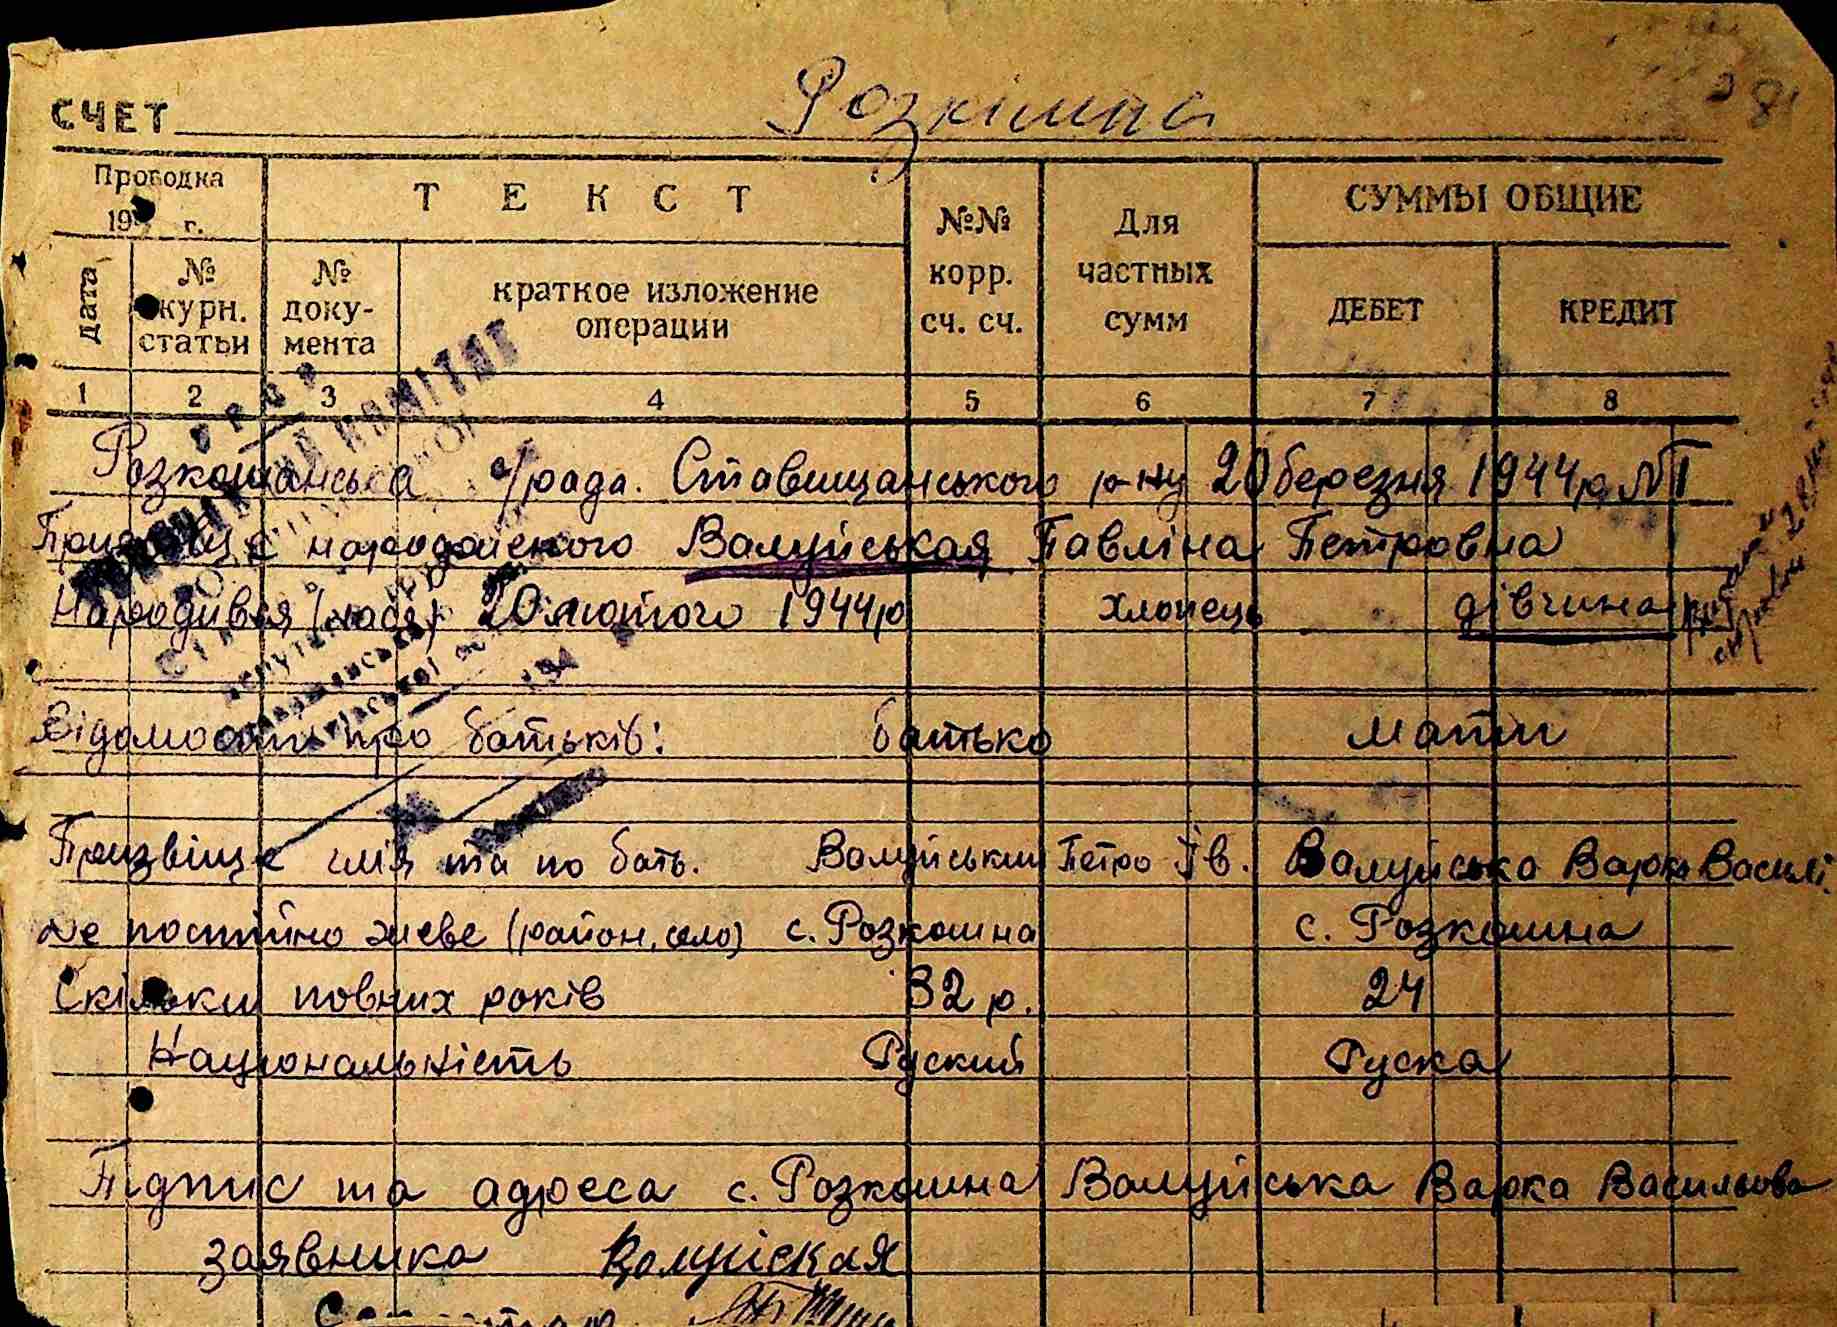 СЧЕТ Розкішна
Проводка
19 г.
ТЕКСТ
№№
корр.
сч. сч.
Для
частных
сумм
СУММЫ ОБЩИЕ
дата
№
журн.
статьи
№
доку-
мента
краткое изложение
операции
ДЕБЕТ
КРЕДИТ
1 2 3 4 5 6 7 8
Розкошанська с/рада. Ставищанського р-ну 20 березня 1944р №1
Призвіще народженого Валуйськая Павліна Петровна
Народився (лась) 20 лютого 1944р хлопець дівчина
Відомости про батьків: батько мати
Призвіще імя та по бать. Валуйський Петро Ів. Валуйська Варка Василі.
де постійно живе (район, село) с. Розкошна с. Розкошна
Скільки повних років 32 р. 24
Національність Руский Руска
Підпис та адреса с. Розкошна Валуйська Варка Васильова
заявника Валуйская